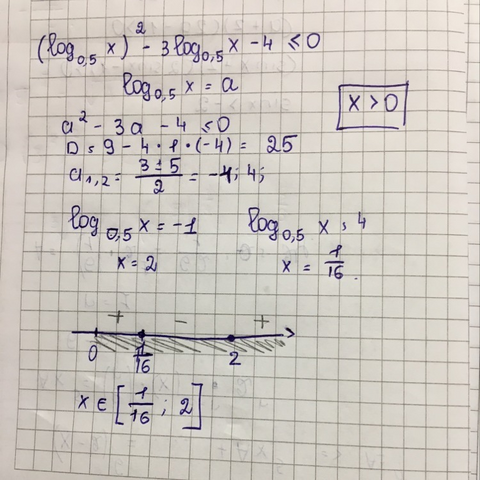 (log₀,₅ x)² - 3log₀,₅ x - 4 ≤ 0
log₀,₅ x = a
x > 0
a² - 3a - 4 ≤ 0
D = 9 - 4 · 1 · (-4) = 25
a₁,₂ = (3 ± 5)/2 = -1; 4;
log₀,₅ x = -1
log₀,₅ x = 4
x = 2
x = 1/16.
+ - +
0 1/16 2
x ∈ [1/16 ; 2]